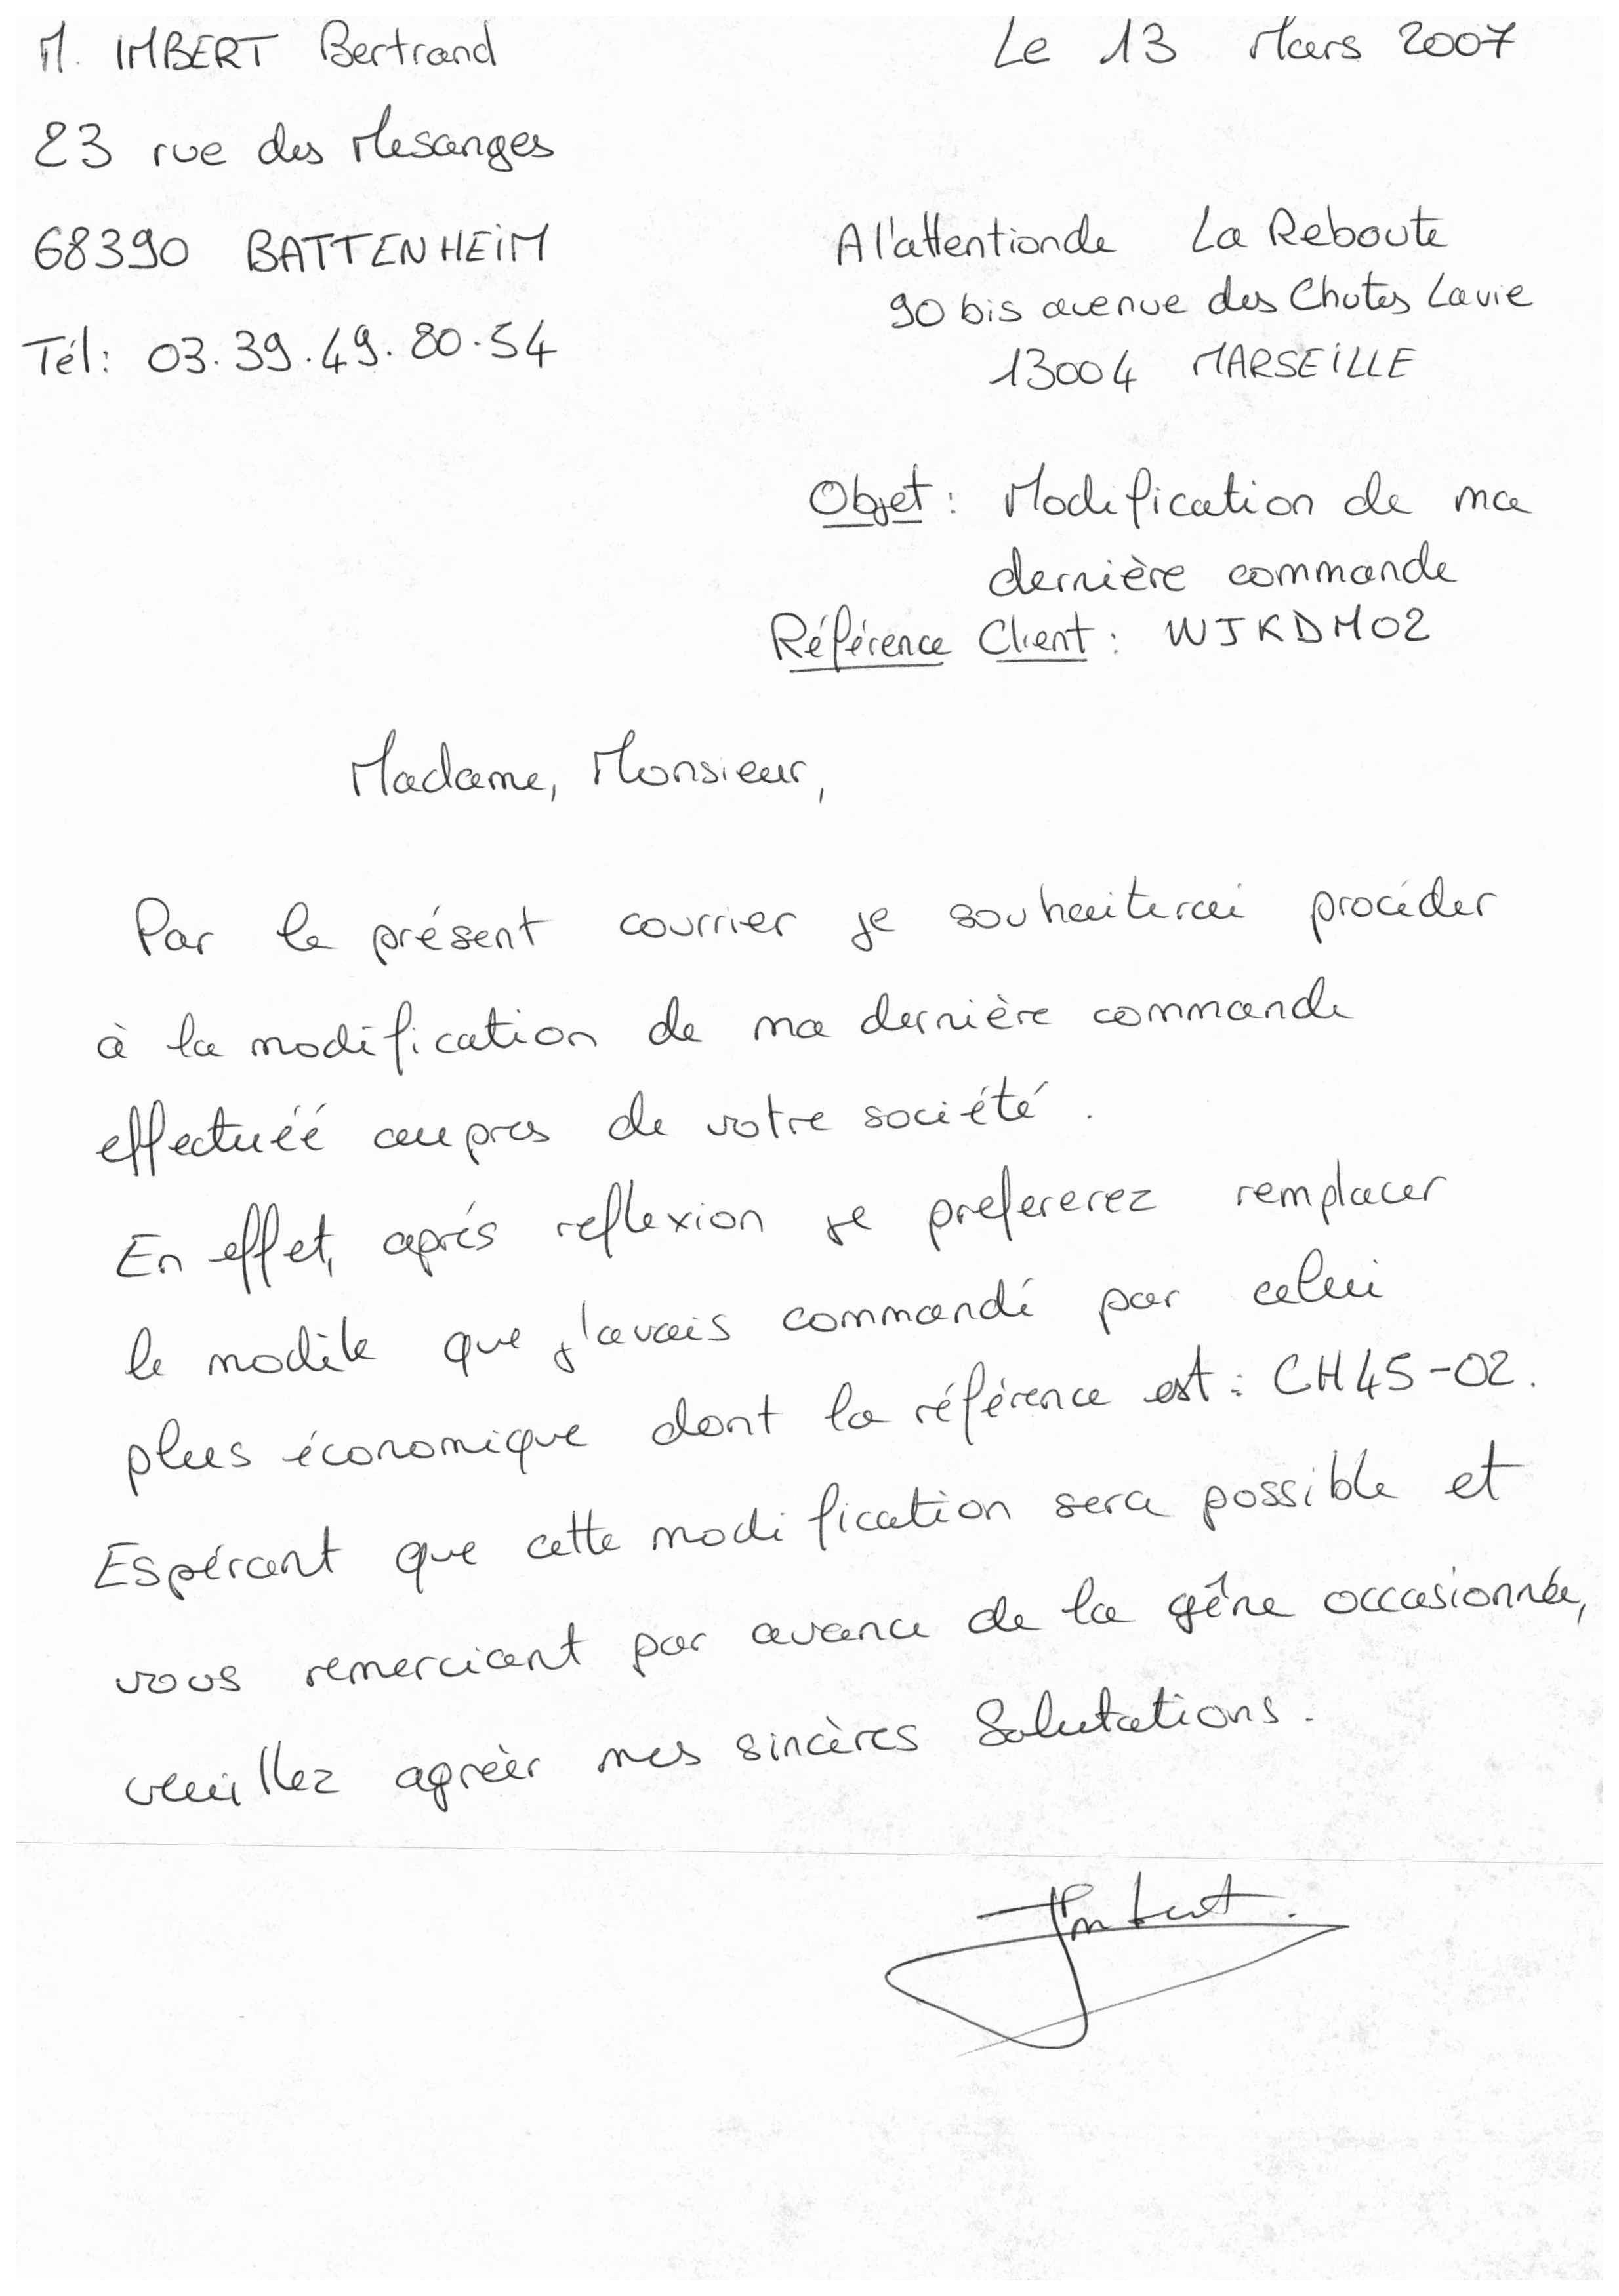 M. IMBERT Bertrand
23 rue des Mesanges
68390 BATTENHEiM
Tél: 03.39.49.80.54
Le 13 Mars 2007
A l'attentionde La Reboute
90 bis avenue des Chutes Lavie
13004 MARSEiLLE
Objet : Modification de ma
dernière commande
Référence Client : WJKDM02
Madame, Monsieur,
Par le présent courrier je souhaiterai procéder
à la modification de ma dernière commande
effectuéé aupres de votre société .
En effet, aprés reflexion je prefererez remplacer
le modèle que j'avais commandé par celui
plus économique dont la référence est : CH45-02.
Espérant que cette modification sera possible et
vous remerciant par avance de la gêne occasionnée,
veuillez agréèr mes sincères Salutations.
Imbert.